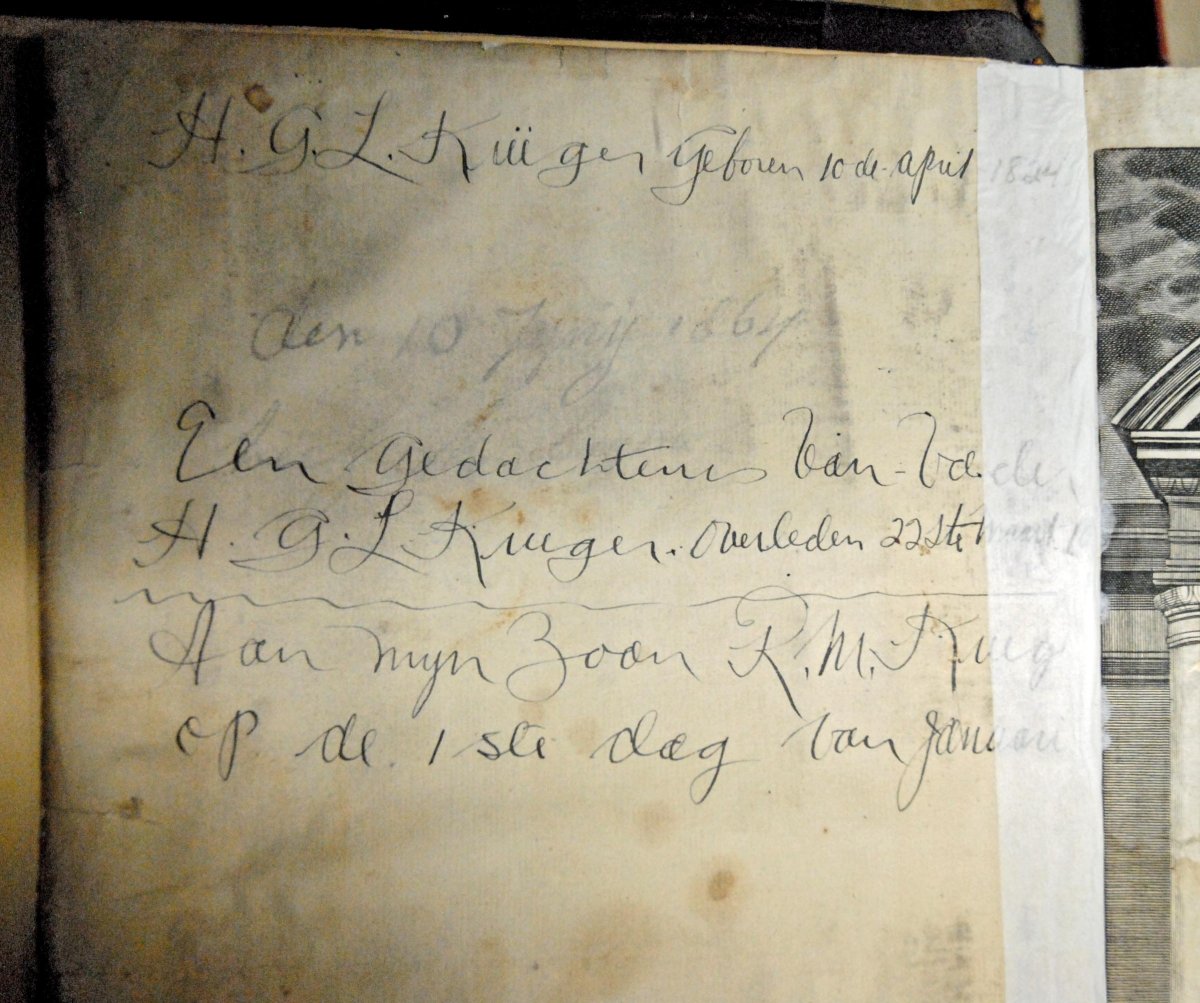 H. G. L. Krüger Geboren 10 de. April
den 10 Juny 1864
Een Gedachtenis Van Vader
H. G. L Krueger. Overleden 22ste Maart
Aan myn Zoon R. M. Krug
op de 1ste dag van Januari